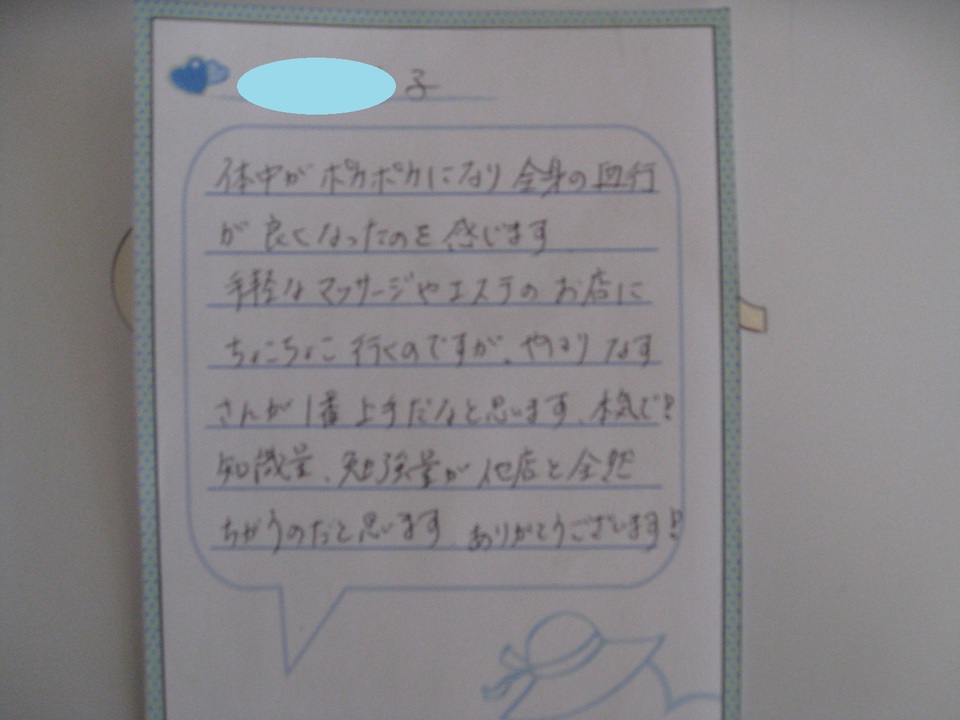 子
体中がポカポカになり全身の血行
が良くなったのを感じます
手軽なマッサージやエステのお店に
ちょこちょこ行くのですが、やはりなす
さんが1番上手だなと思います、本気で!!
知識量、勉強量が他店と全然
ちがうのだと思います ありがとうございます!!